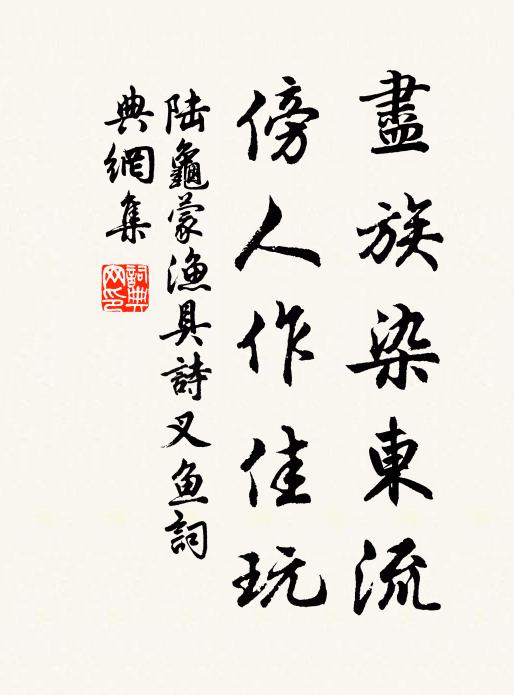 盡族染東流
傍人作佳玩
陸龜蒙漁具詩叉魚詞
典網集
詞典网印